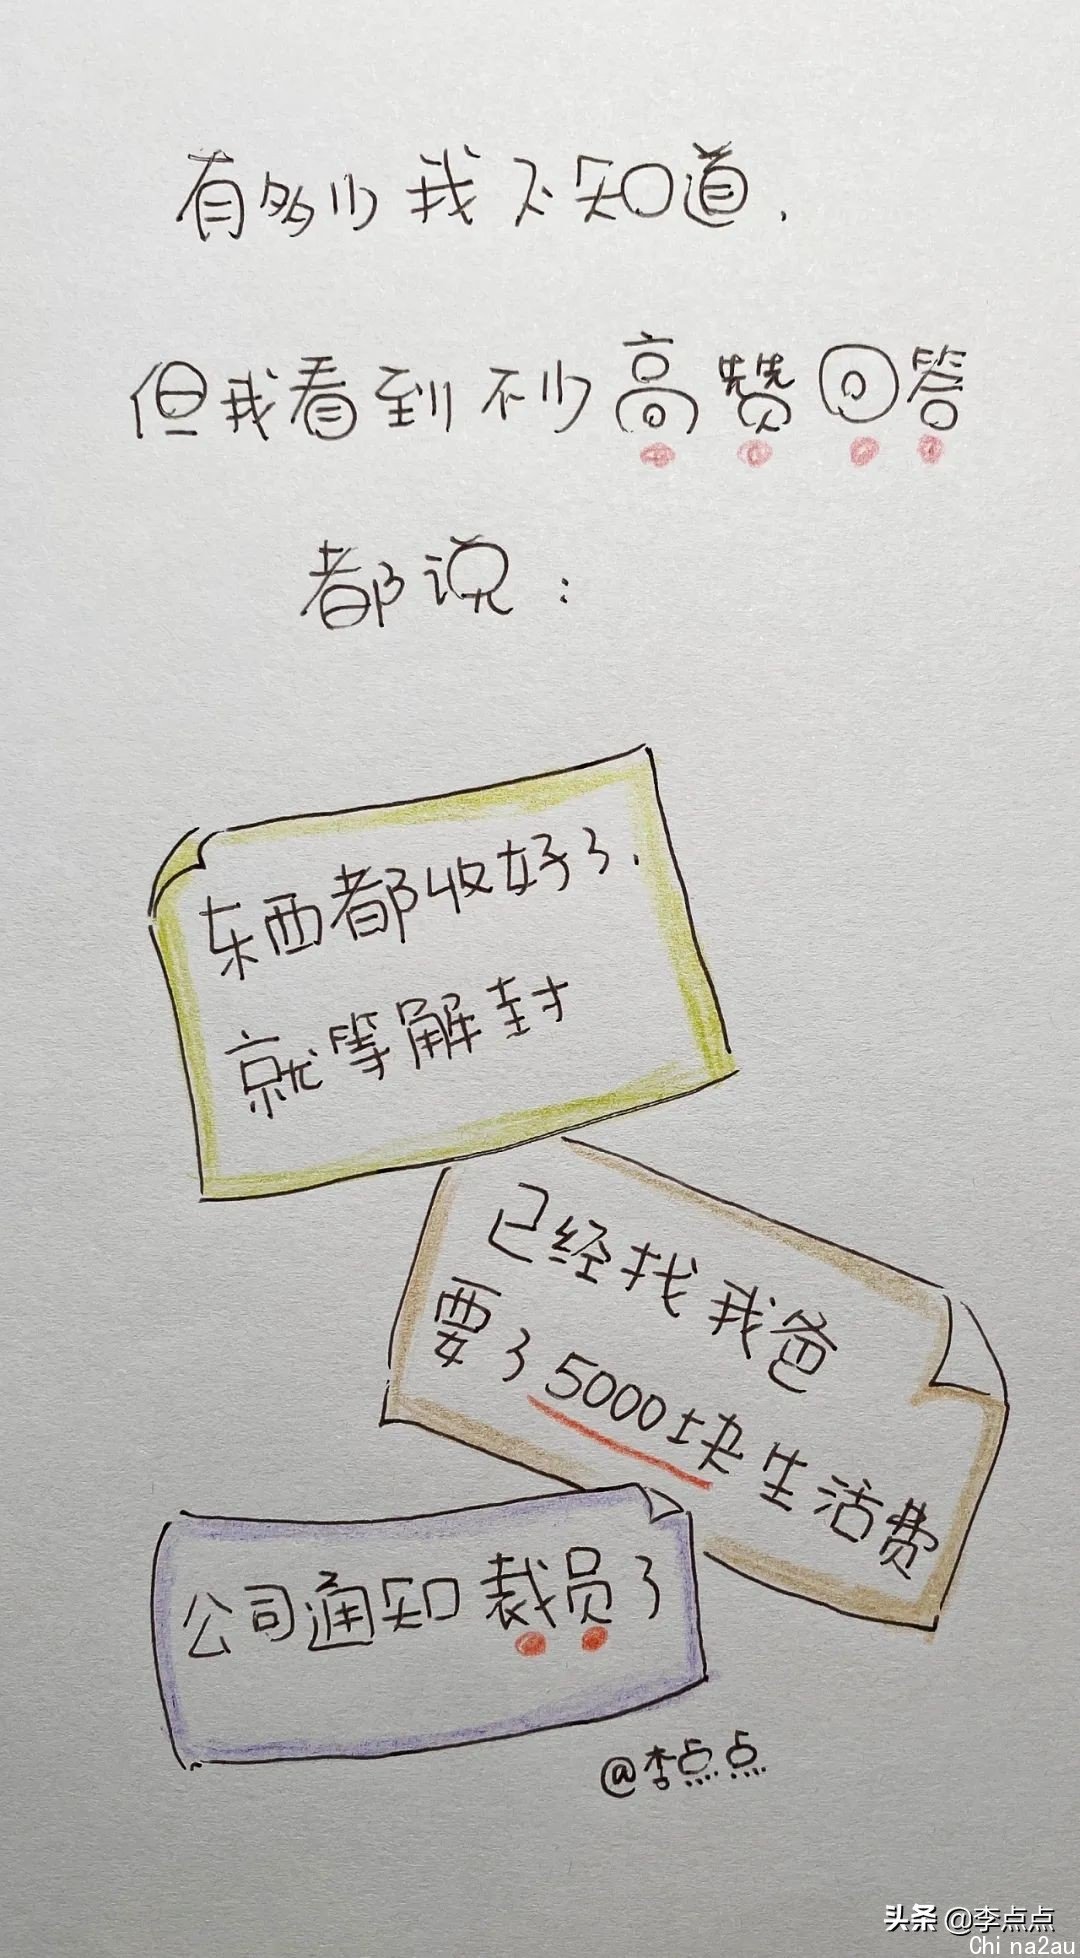 有多少我不知道,
但我看到不少高赞回答
都说:
东西都收好了,
就等解封
已经找我爸
要了5000块生活费
公司通知裁员了
@李点点
头条 @李点点
Chi na2au